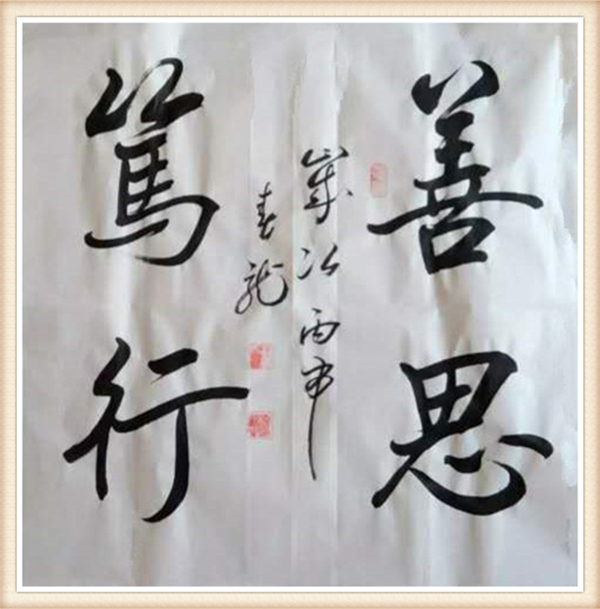 善思
歲次丙申
春龍
篤行